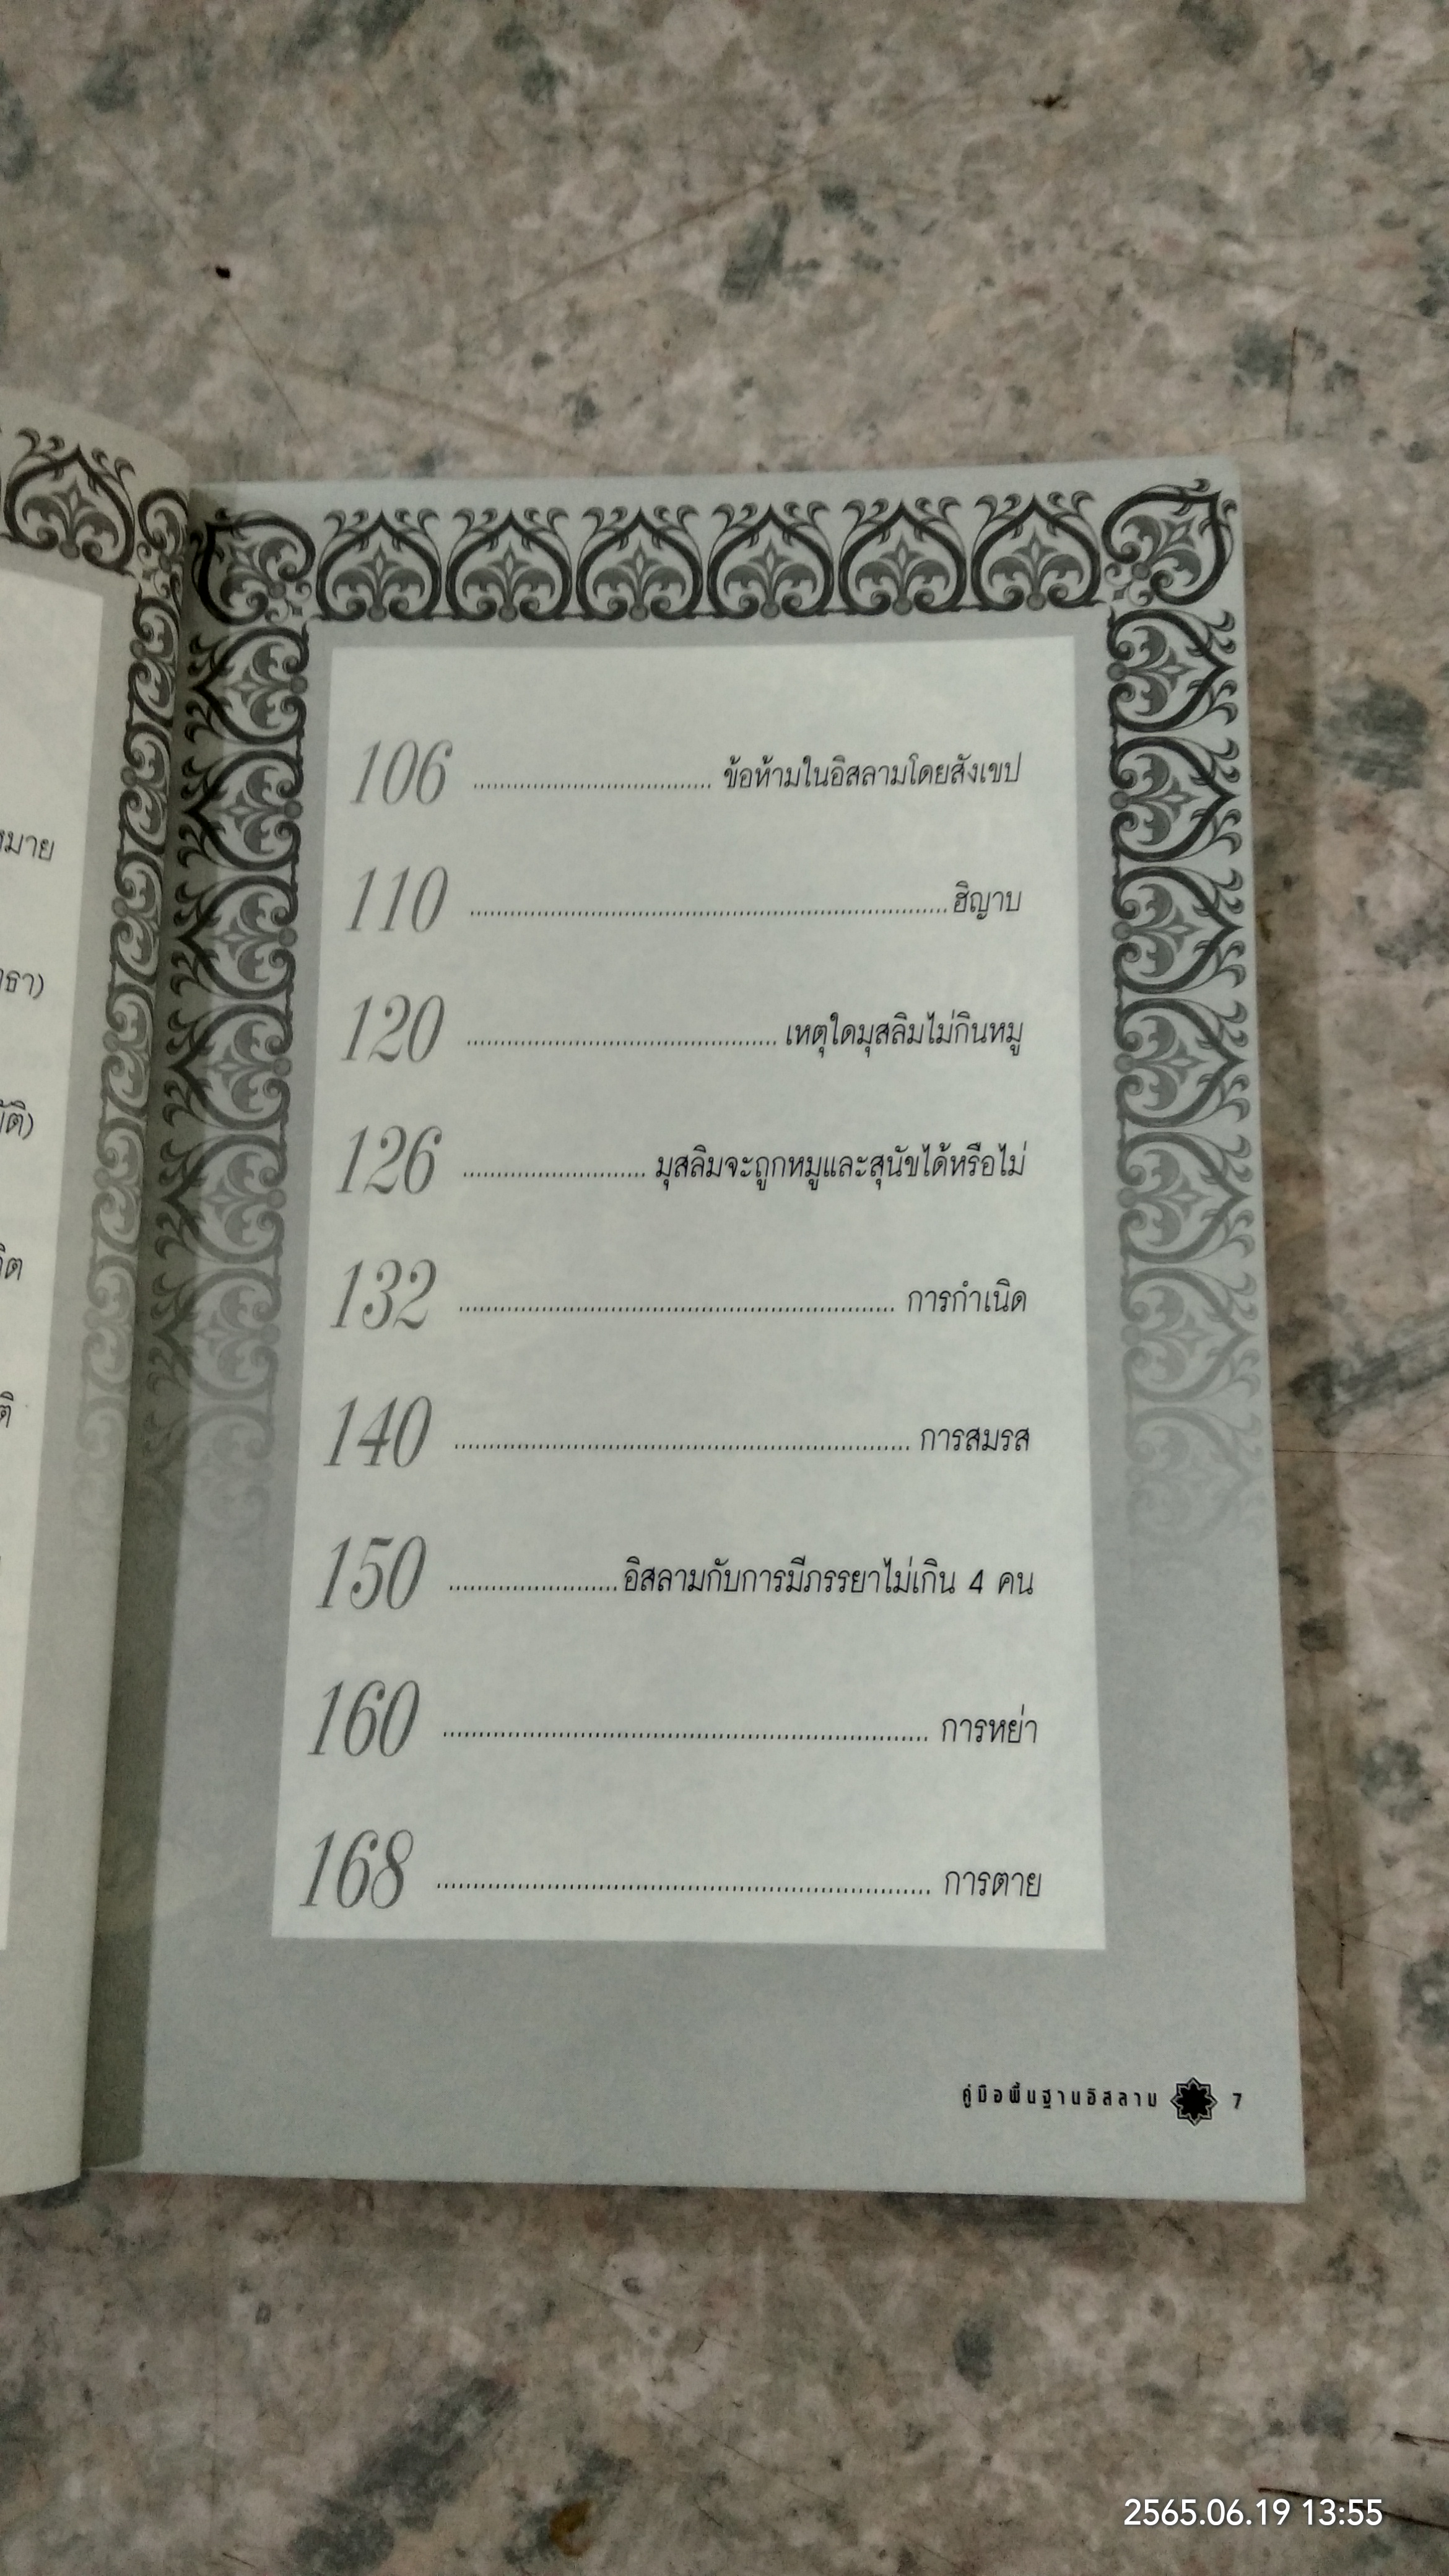 หมาย
106 .......... ข้อห้ามในอิสลามโดยสังเขป
110 .......... ฮิญาบ
120 .......... เหตุใดมุสลิมไม่กินหมู
126 .......... มุสลิมจะถูกหมูและสุนัขได้หรือไม่
132 .......... การกำเนิด
140 .......... การสมรส
150 .......... อิสลามกับการมีภรรยาไม่เกิน 4 คน
160 .......... การหย่า
168 .......... การตาย
คู่มือพื้นฐานอิสลาม 7
2565.06.19 13:55